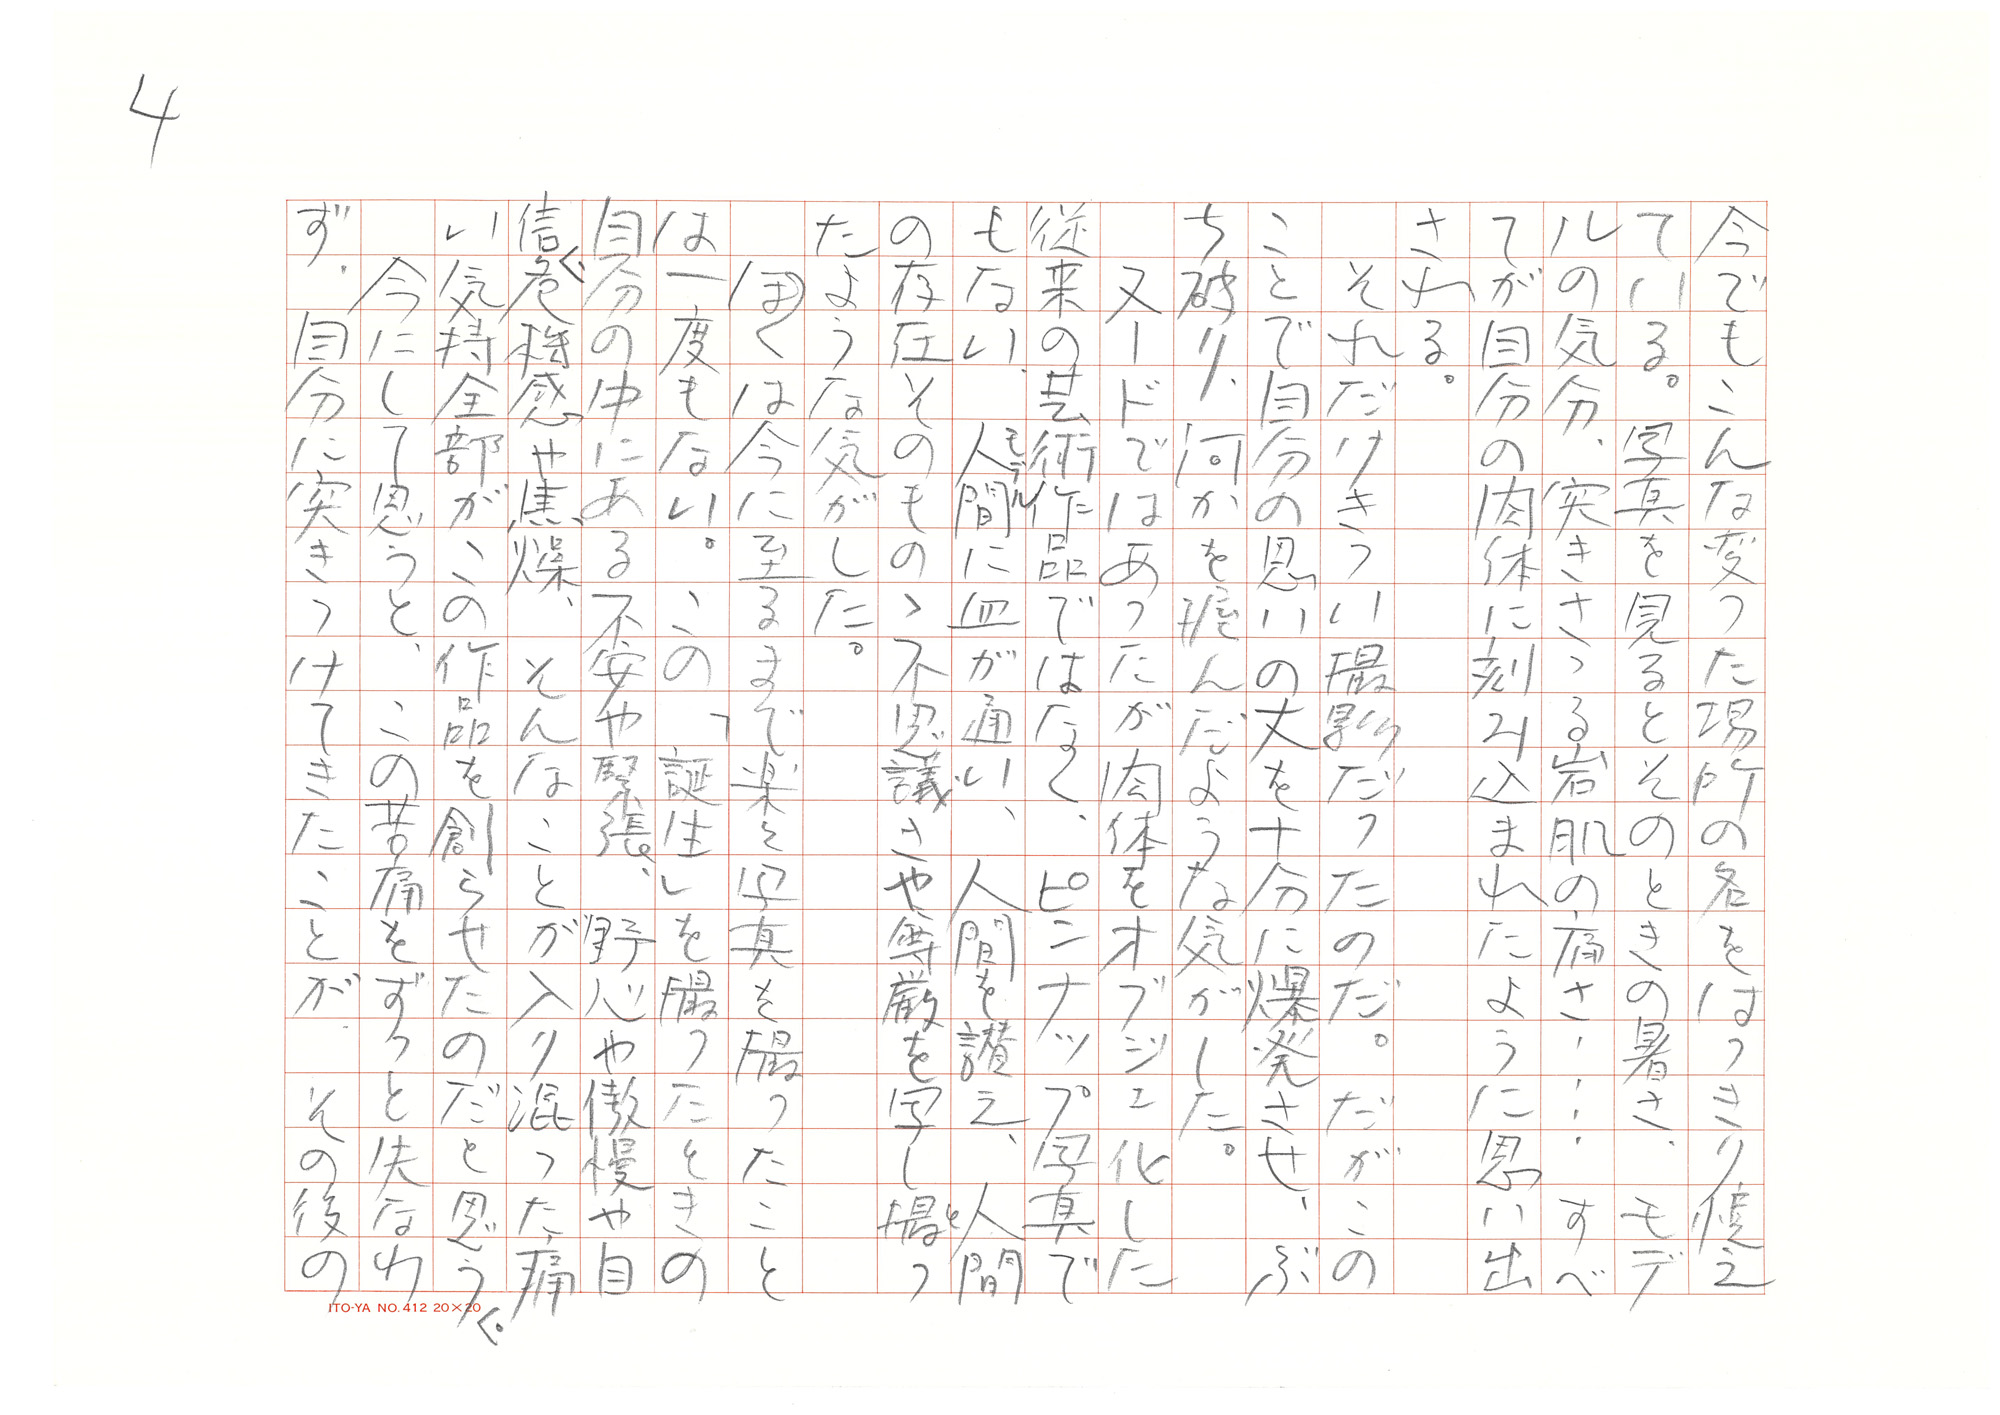 4
今でもこんな変った場所の名をはっきり憶え
ている。写真を見るとそのときの暑さ、モデ
ルの気分、突きささる岩肌の痛さ……すべ
てが自分の肉体に刻み込まれたように思い出
される。
それだけきつい撮影だったのだ。だがこの
ことで自分の思いの丈を十分に爆発させ、ぶ
ち破り、何かを掴んだような気がした。
ヌードではあったが肉体をオブジェ化した
従来の芸術作品ではなく、ピンナップ写真で
もない、人間モデルに血が通い、人間を讃え、人間
の存在そのものゝ不思議さや尊厳を写し撮っ
たような気がした。
ぼくは今に至るまで楽々写真を撮ったこと
は一度もない。この「誕生」を撮ったときの
自分の中にある不安や緊張、野心や傲慢や自
信、危機感や焦燥、そんなことが入り混った、痛
い気持全部がこの作品を創らせたのだと思う。
今にして思うと、この苦痛をずっと失なわ
ず、自分に突きつけてきたことが、その後の
ITO-YA NO.412 20×20